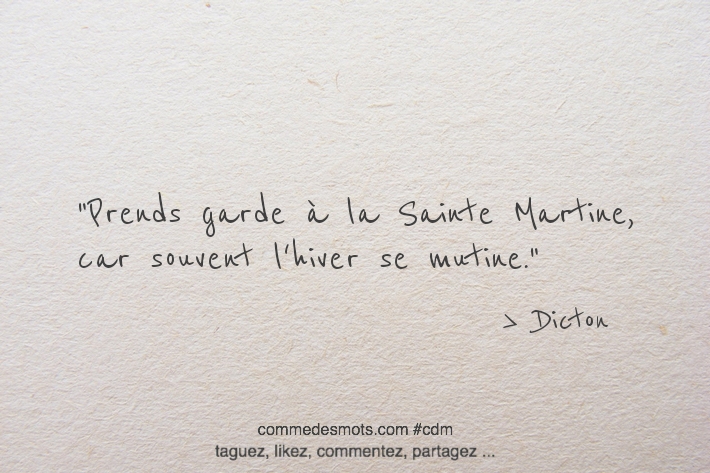 "Prends garde à la Sainte Martine,
car souvent l'hiver se mutine."
> Dicton
commedesmots.com #cdm
taguez, likez, commentez, partagez ...